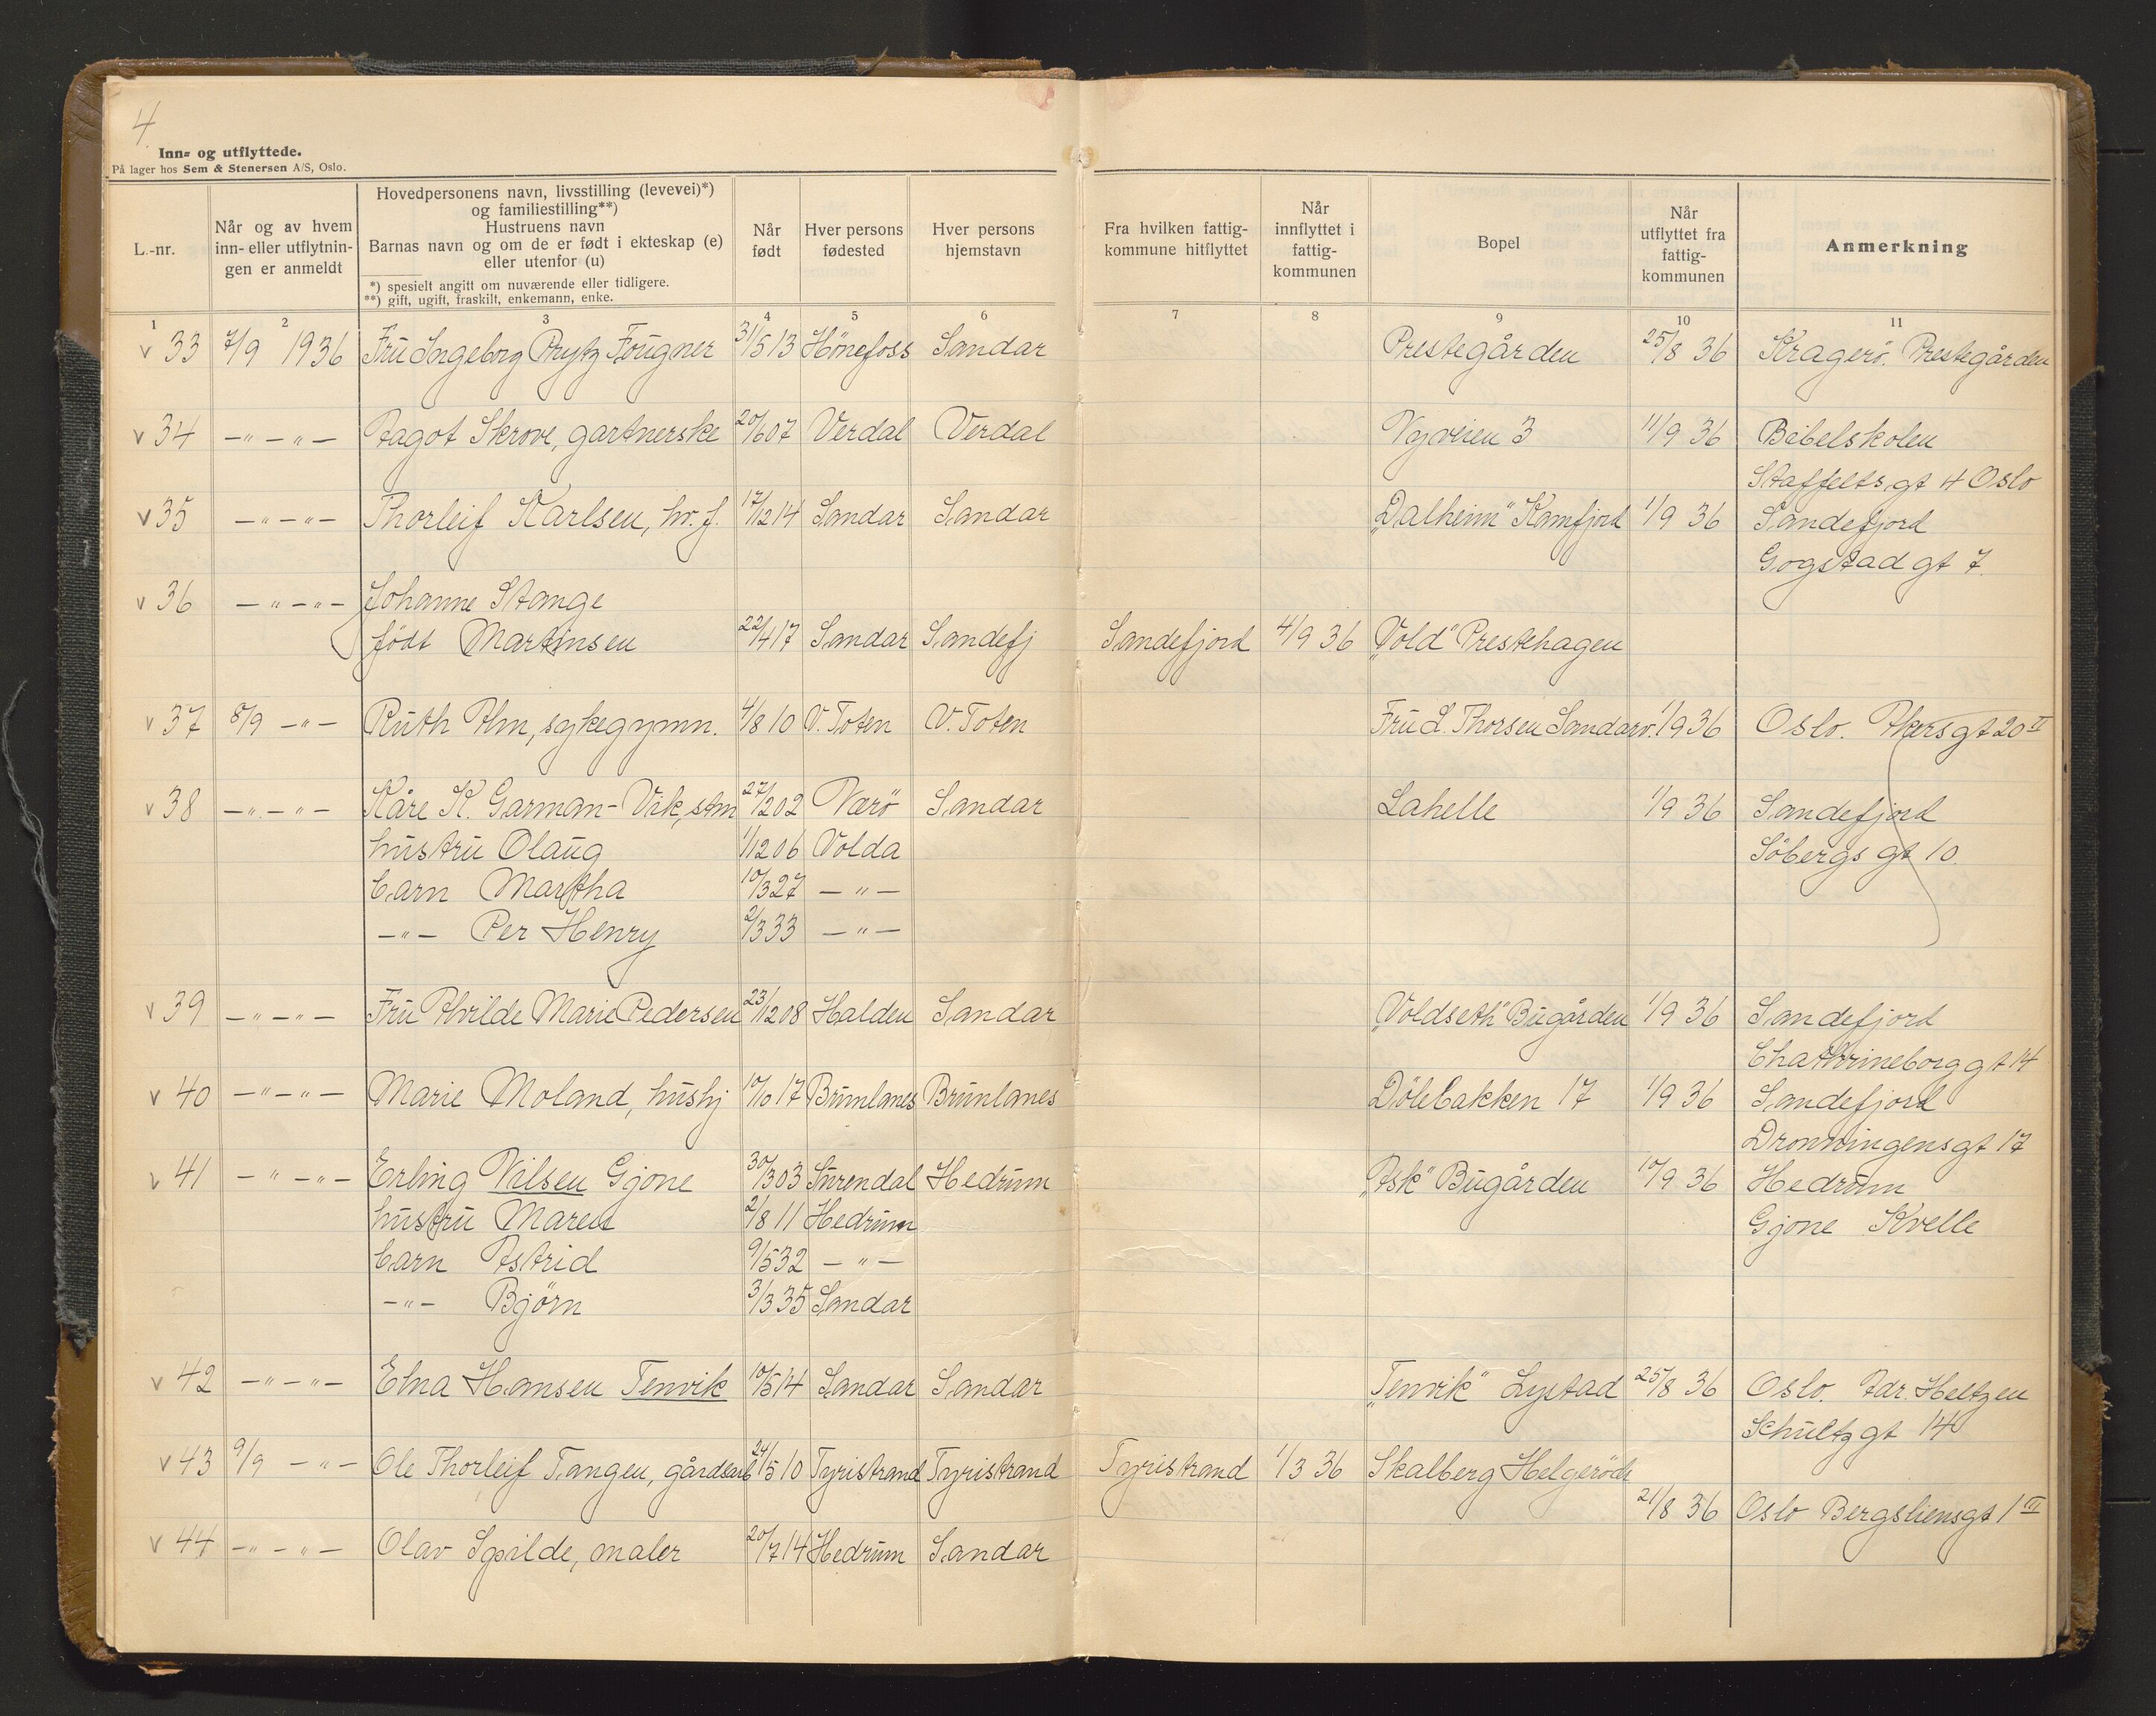 4
Inn- og utflyttede.
På lager hos Sem & Stenersen A/S, Oslo.
L.-nr.
Når og av hvem
inn- eller utflytnin-
gen er anmeldt
Hovedpersonens navn, livsstilling (levevei)*)
og familiestilling**)
Hustruens navn
Barnas navn og om de er født i ekteskap (e)
eller utenfor (u)
*) spesielt angitt om nuværende eller tidligere.
**) gift, ugift, fraskilt, enkemann, enke.
Når
født
Hver persons
fødested
Hver persons
hjemstavn
Fra hvilken fattig-
kommune hitflyttet
Når
innflyttet i
fattig-
kommunen
Bopel
Når
utflyttet fra
fattig-
kommunen
Anmerkning
1 2 3 4 5 6 7 8 9 10 11
v 33 7/9 1936 Fru Ingeborg Prytz Fougner 31/5 13 Hønefoss Sandar Prestegården 25/8 36 Kragerö. Prestegården
v 34 -"- -"- Aagot Skrove, gartnerske 20/6 07 Verdal Verdal Nyveien 3 11/9 36 Bibelskolen
Staffeltsgt 4 Oslo
v 35 -"- -"- Thorleif Karlsen, hv. f. 17/12 14 Sandar Sandar "Dalheim" Kamfjord 1/9 36 Sandefjord
Gogstad gt 7.
v 36 -"- -"- Johanne Stange
født Martinsen 22/4 17 Sandar Sandefj Sandefjord 4/9 36 "Vold" Prestehagen
v 37 8/9 -"- Ruth Alm, sykegymn. 4/8 10 V. Toten V. Toten Fru L. Thorsen Sandarv. 1/9 36 Oslo. Akersgt 20 II
v 38 -"- -"- Kåre K. Garman-Vik, stm 27/2 02 Værö Sandar Lahelle 1/9 36 Sandefjord
hustru Olaug 1/12 06 Volda Söbergs gt 10
barn Martha 10/3 27 -"-
-"- Per Henry 2/3 33 -"-
v 39 -"- -"- Fru Alvilde Marie Pedersen 23/12 08 Halden Sandar "Voldseth" Bugården 1/9 36 Sandefjord
Chathrineborggt 14
v 40 -"- -"- Marie Moland, hushj 10/10 17 Brunlanes Brunlanes Dölebakken 17 1/9 36 Sandefjord
Dronningensgt 17
v 41 -"- -"- Erling Nilsen Gjone 30/3 03 Surendal Hedrum "Ask" Bugården 10/9 36 Hedrum
hustru Maren 2/8 11 Hedrum Gjone Kvelle
barn Astrid 9/5 32 -"-
-"- Björn 3/3 35 Sandar
v 42 -"- -"- Elna Hansen Tenvik 10/5 14 Sandar Sandar "Tenvik" Lystad 25/8 36 Oslo. Adr. Heltzen
Schultzgt 14
v 43 9/9 -"- Ole Thorleif Tangen, gårdsarb 24/5 10 Tyristrand Tyristrand Tyristrand 1/3 36 Skalberg Helgeröd
21/8 36 Oslo Bergsliensgt 1 III
v 44 -"- -"- Olav Spilde, maler 20/7 14 Hedrum Sandar